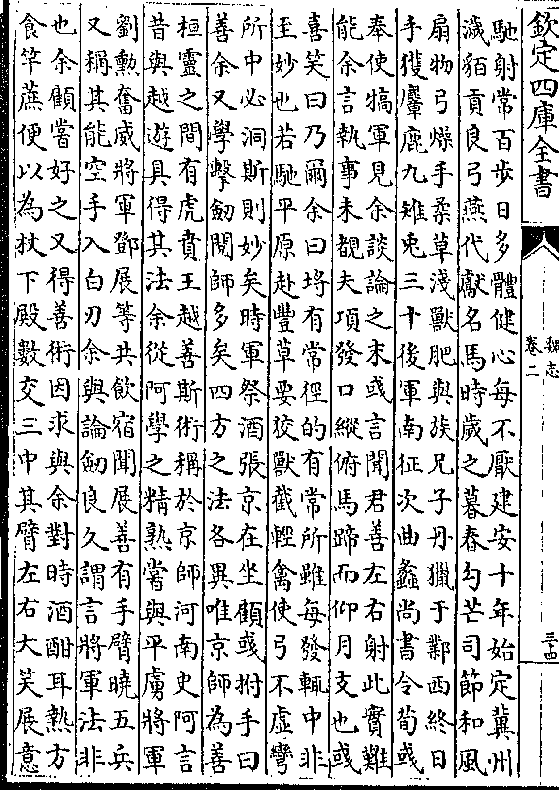 欽定四庫全書
魏志
卷二
三四
馳射常百步日多體健心每不厭建安十年始定冀州
濊貊貢良弓燕代獻名馬時歲之暮春勾芒司節和風
扇物弓燥手柔草淺獸肥與族兄子丹獵于鄴西終日
手獲麞鹿九雉兎三十後軍南征次曲蠡尚書令荀彧
奉使犒軍見余談論之末彧言聞君善左右射此實難
能余言執事未覩夫項發口縱俯馬蹄而仰月支也彧
喜笑曰乃爾余曰埒有常徑的有常所雖每發輒中非
至妙也若馳平原赴豐草要狡獸截輕禽使弓不虛彎
所中必洞斯則妙矣時軍祭酒張京在坐顧彧拊手曰
善余又學擊劒閱師多矣四方之法各異唯京師為善
桓靈之間有虎賁王越善斯術稱於京師河南史阿言
昔與越遊具得其法余從阿學之精熟嘗與平虜將軍
劉勲奮威將軍鄧展等共飲宿聞展善有手臂曉五兵
又稱其能空手入白刃余與論劒良久謂言將軍法非
也余顧嘗好之又得善術因求與余對時酒酣耳熱方
食竿蔗便以為杖下殿數交三中其臂左右大笑展意